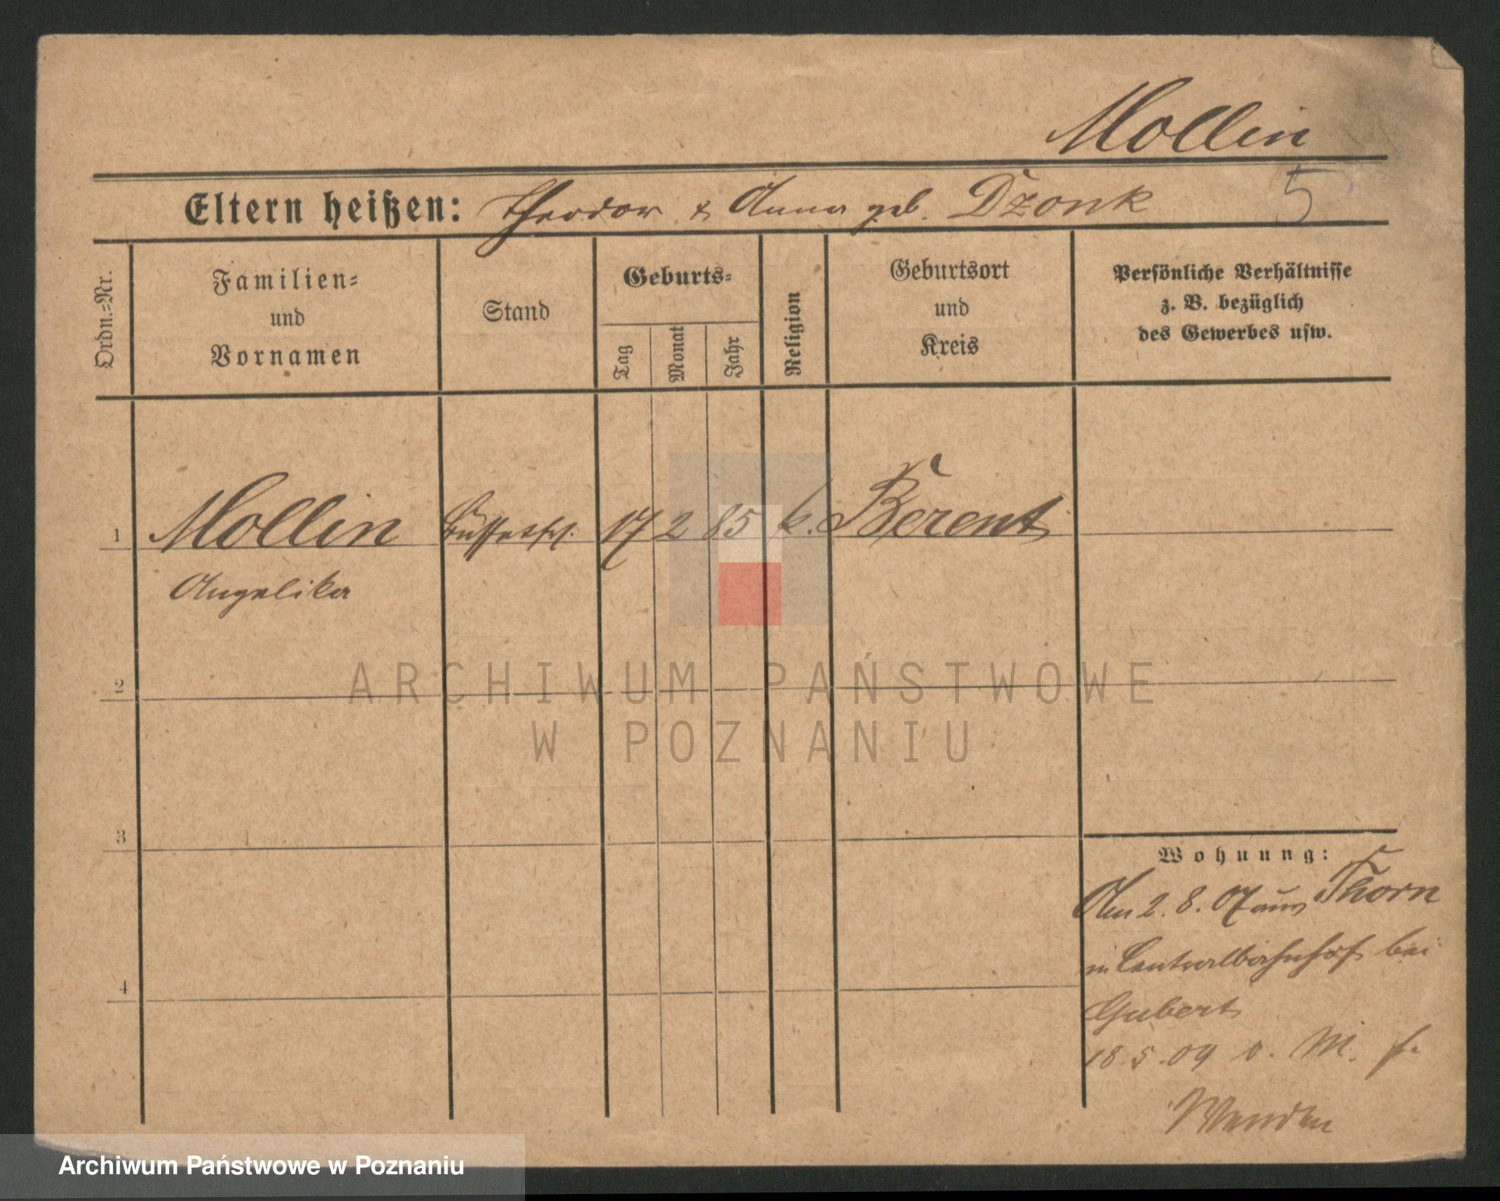 Mollin
5
Eltern heißen: Theodor & Anna geb. Dzonk
Ordn.=Nr.
Familien=
und
Vornamen
Stand
Geburts=
Tag
Monat
Jahr
Religion
Geburtsort
und
Kreis
Persönliche Verhältnisse
z. B. bezüglich
des Gewerbes usw.
1 Mollin 17 2 85 k. Berent
Angelika
2
3
4
Wohnung:
Am 2. 8. 07 aus Thorn
in Centralbahnhof bei
Gubert
18. 5. 09 v. M. f.
Wenden
ARCHIWUM PAŃSTWOWE
W POZNANIU
Archiwum Państwowe w Poznaniu